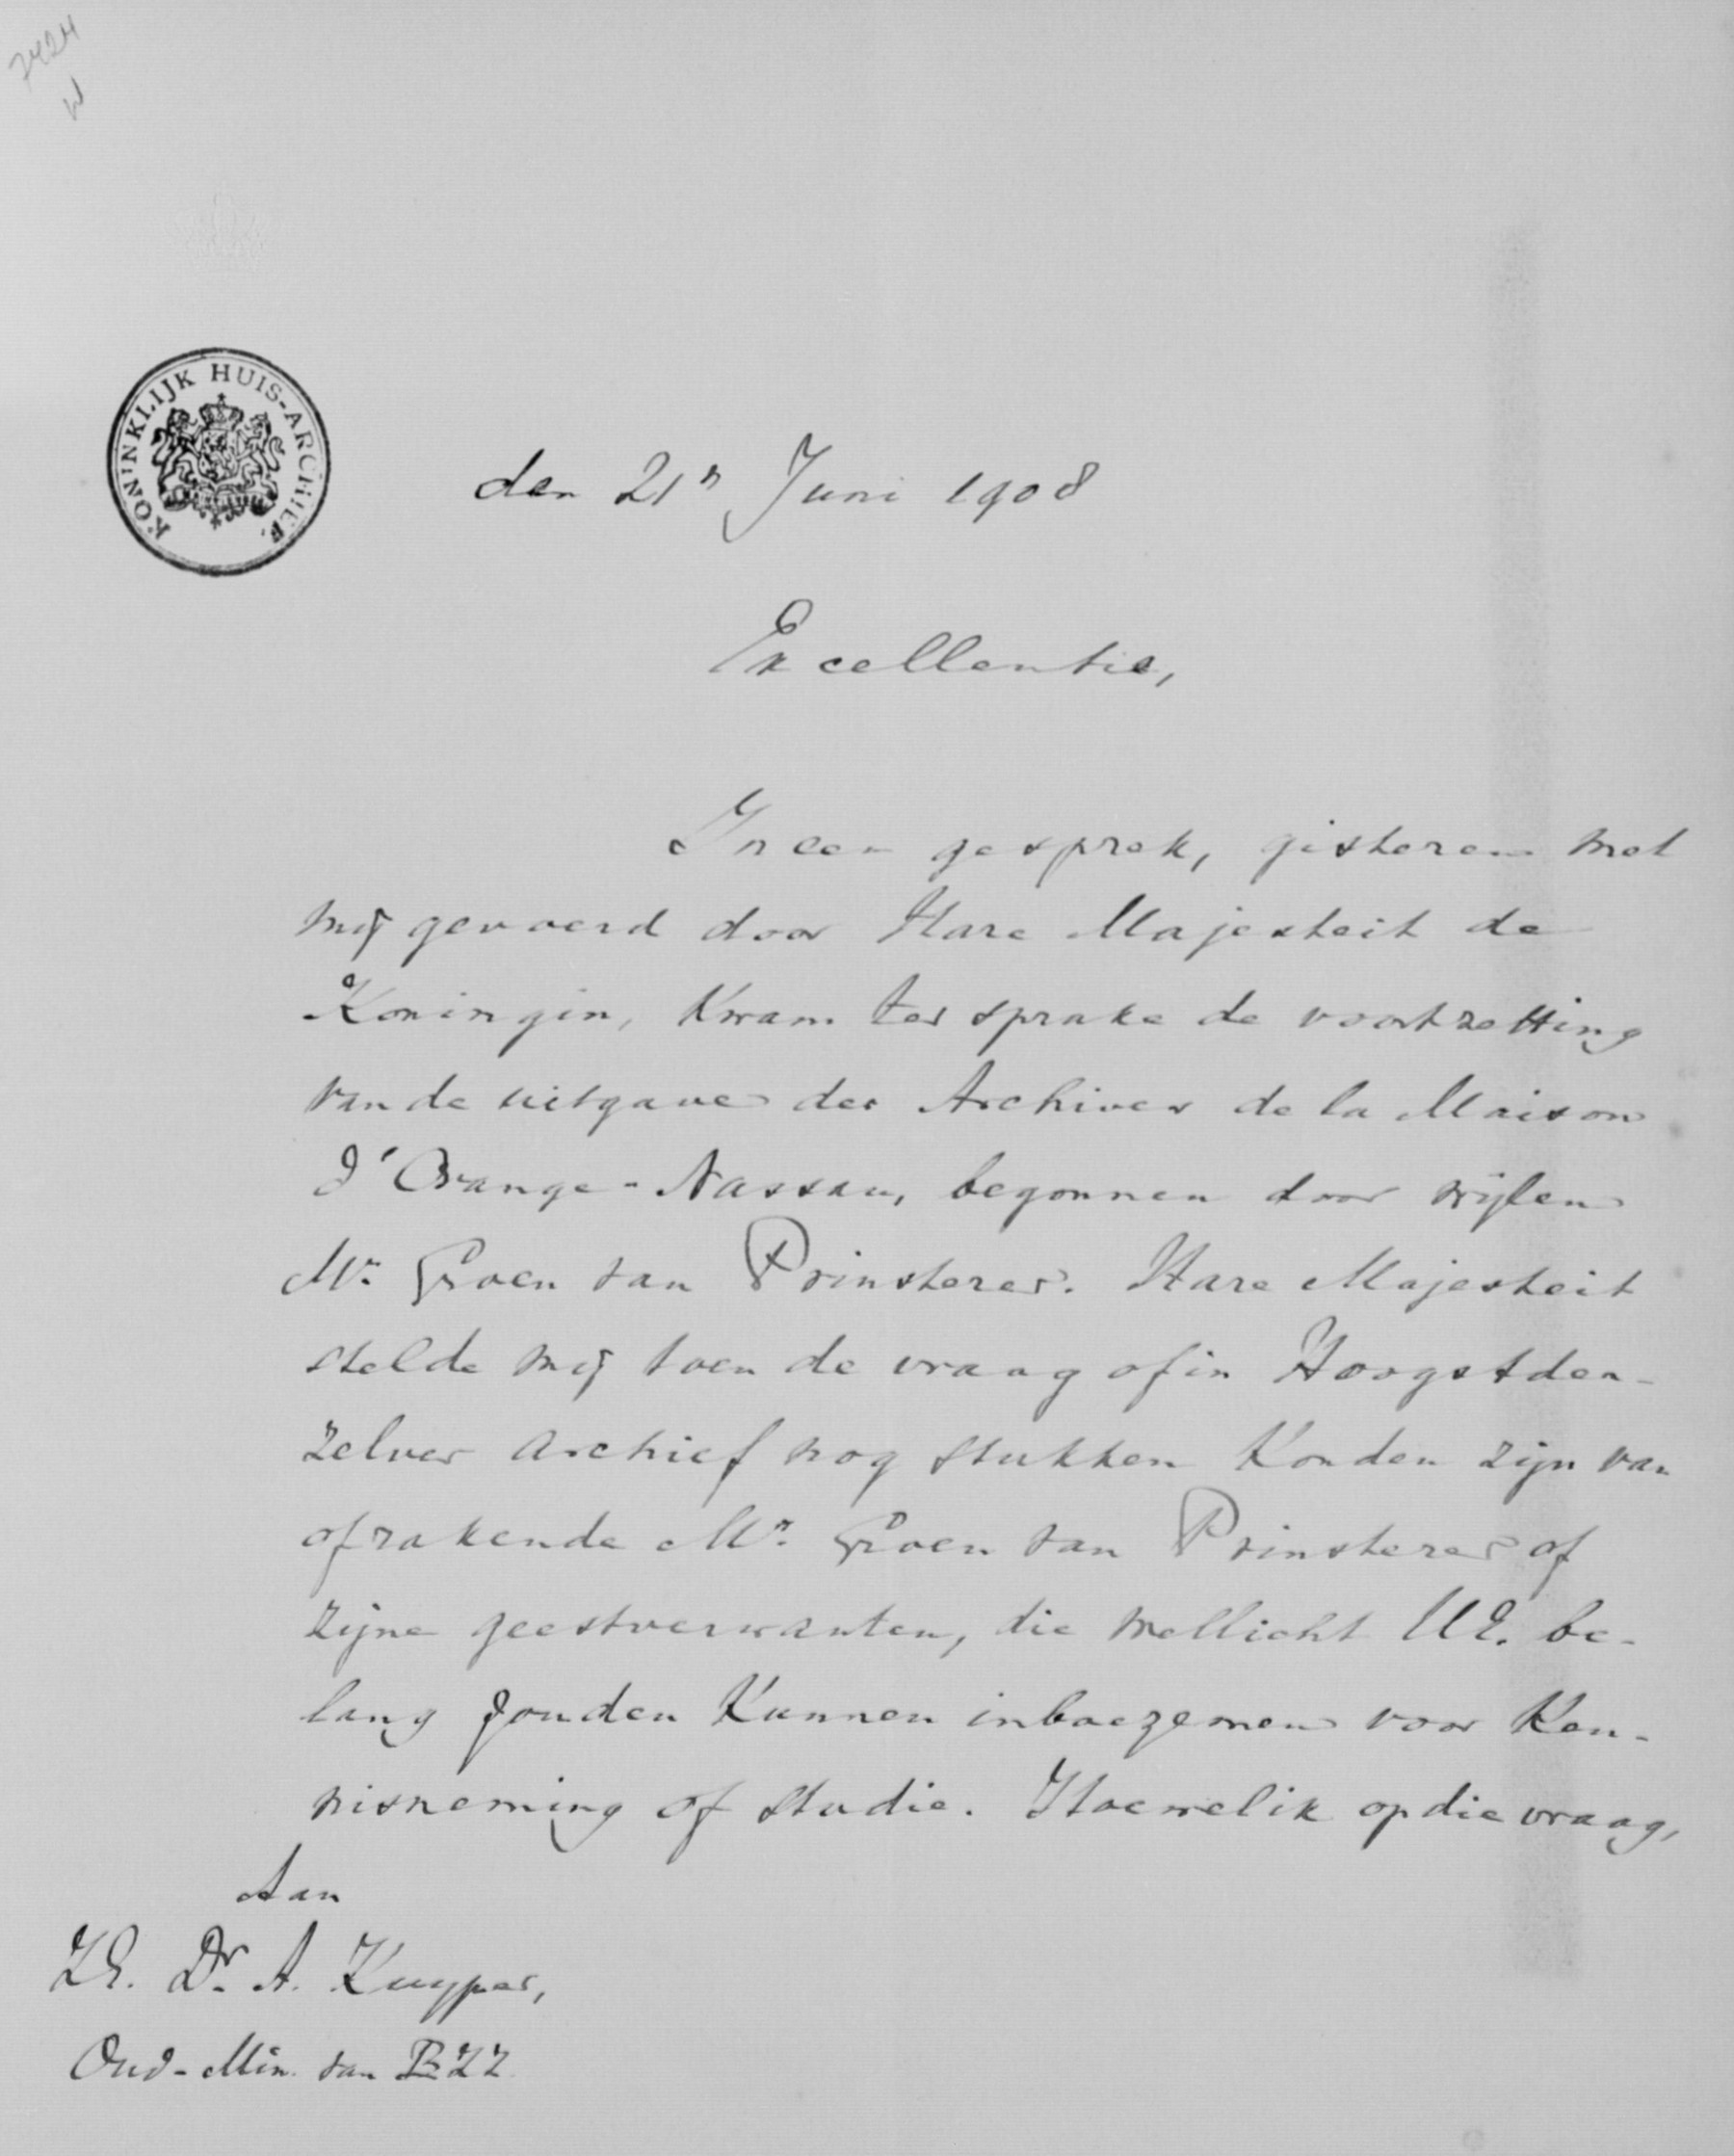 7424
KONINKLIJK HUIS-ARCHIEF.
den 21n Juni 1908
Excellentie,
In een gesprek, gisteren met
mij gevoerd door Hare Majesteit de
Koningin, kwam ter sprake de voortzetting
van de uitgave der Archives de la Maison
d'Orange-Nassau, begonnen door wijlen
Mr. Groen van Prinsterer. Hare Majesteit
stelde mij toen de vraag of in Hoogstder-
zelver archief nog stukken konden zijn van
of rakende Mr. Groen van Prinsterer of
zijne geestverwanten, die wellicht UE. be-
lang zouden kunnen inboezemen voor ken-
nisneming of studie. Hoewel ik op die vraag,
Aan
ZE. Dr. A. Kuyper,
Oud-Min. van BZZ